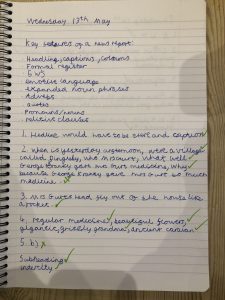 Wednesday 13th May
Key features of a news report:
Headline, captions, columns
Formal register
5 W's
emotive language
expanded noun phrases
Adverbs
quotes
Pronouns/nouns
relative clauses
1. Headline would have to be short and caption
2. When is yesterday afternoon, were a village
called Dingleby, who is Mrs Gurt, What Well
George Kranky gave Mrs Gurt medicine, Why
because George Kranky gave Mrs Gurt so much
medicine.
3. Mrs Gurt's head fly out of the house like
a rocket.
4. regular medicine, beautiful flowers,
gigantic, grizzly grandma, ancient caravan
5. b)
Subheading